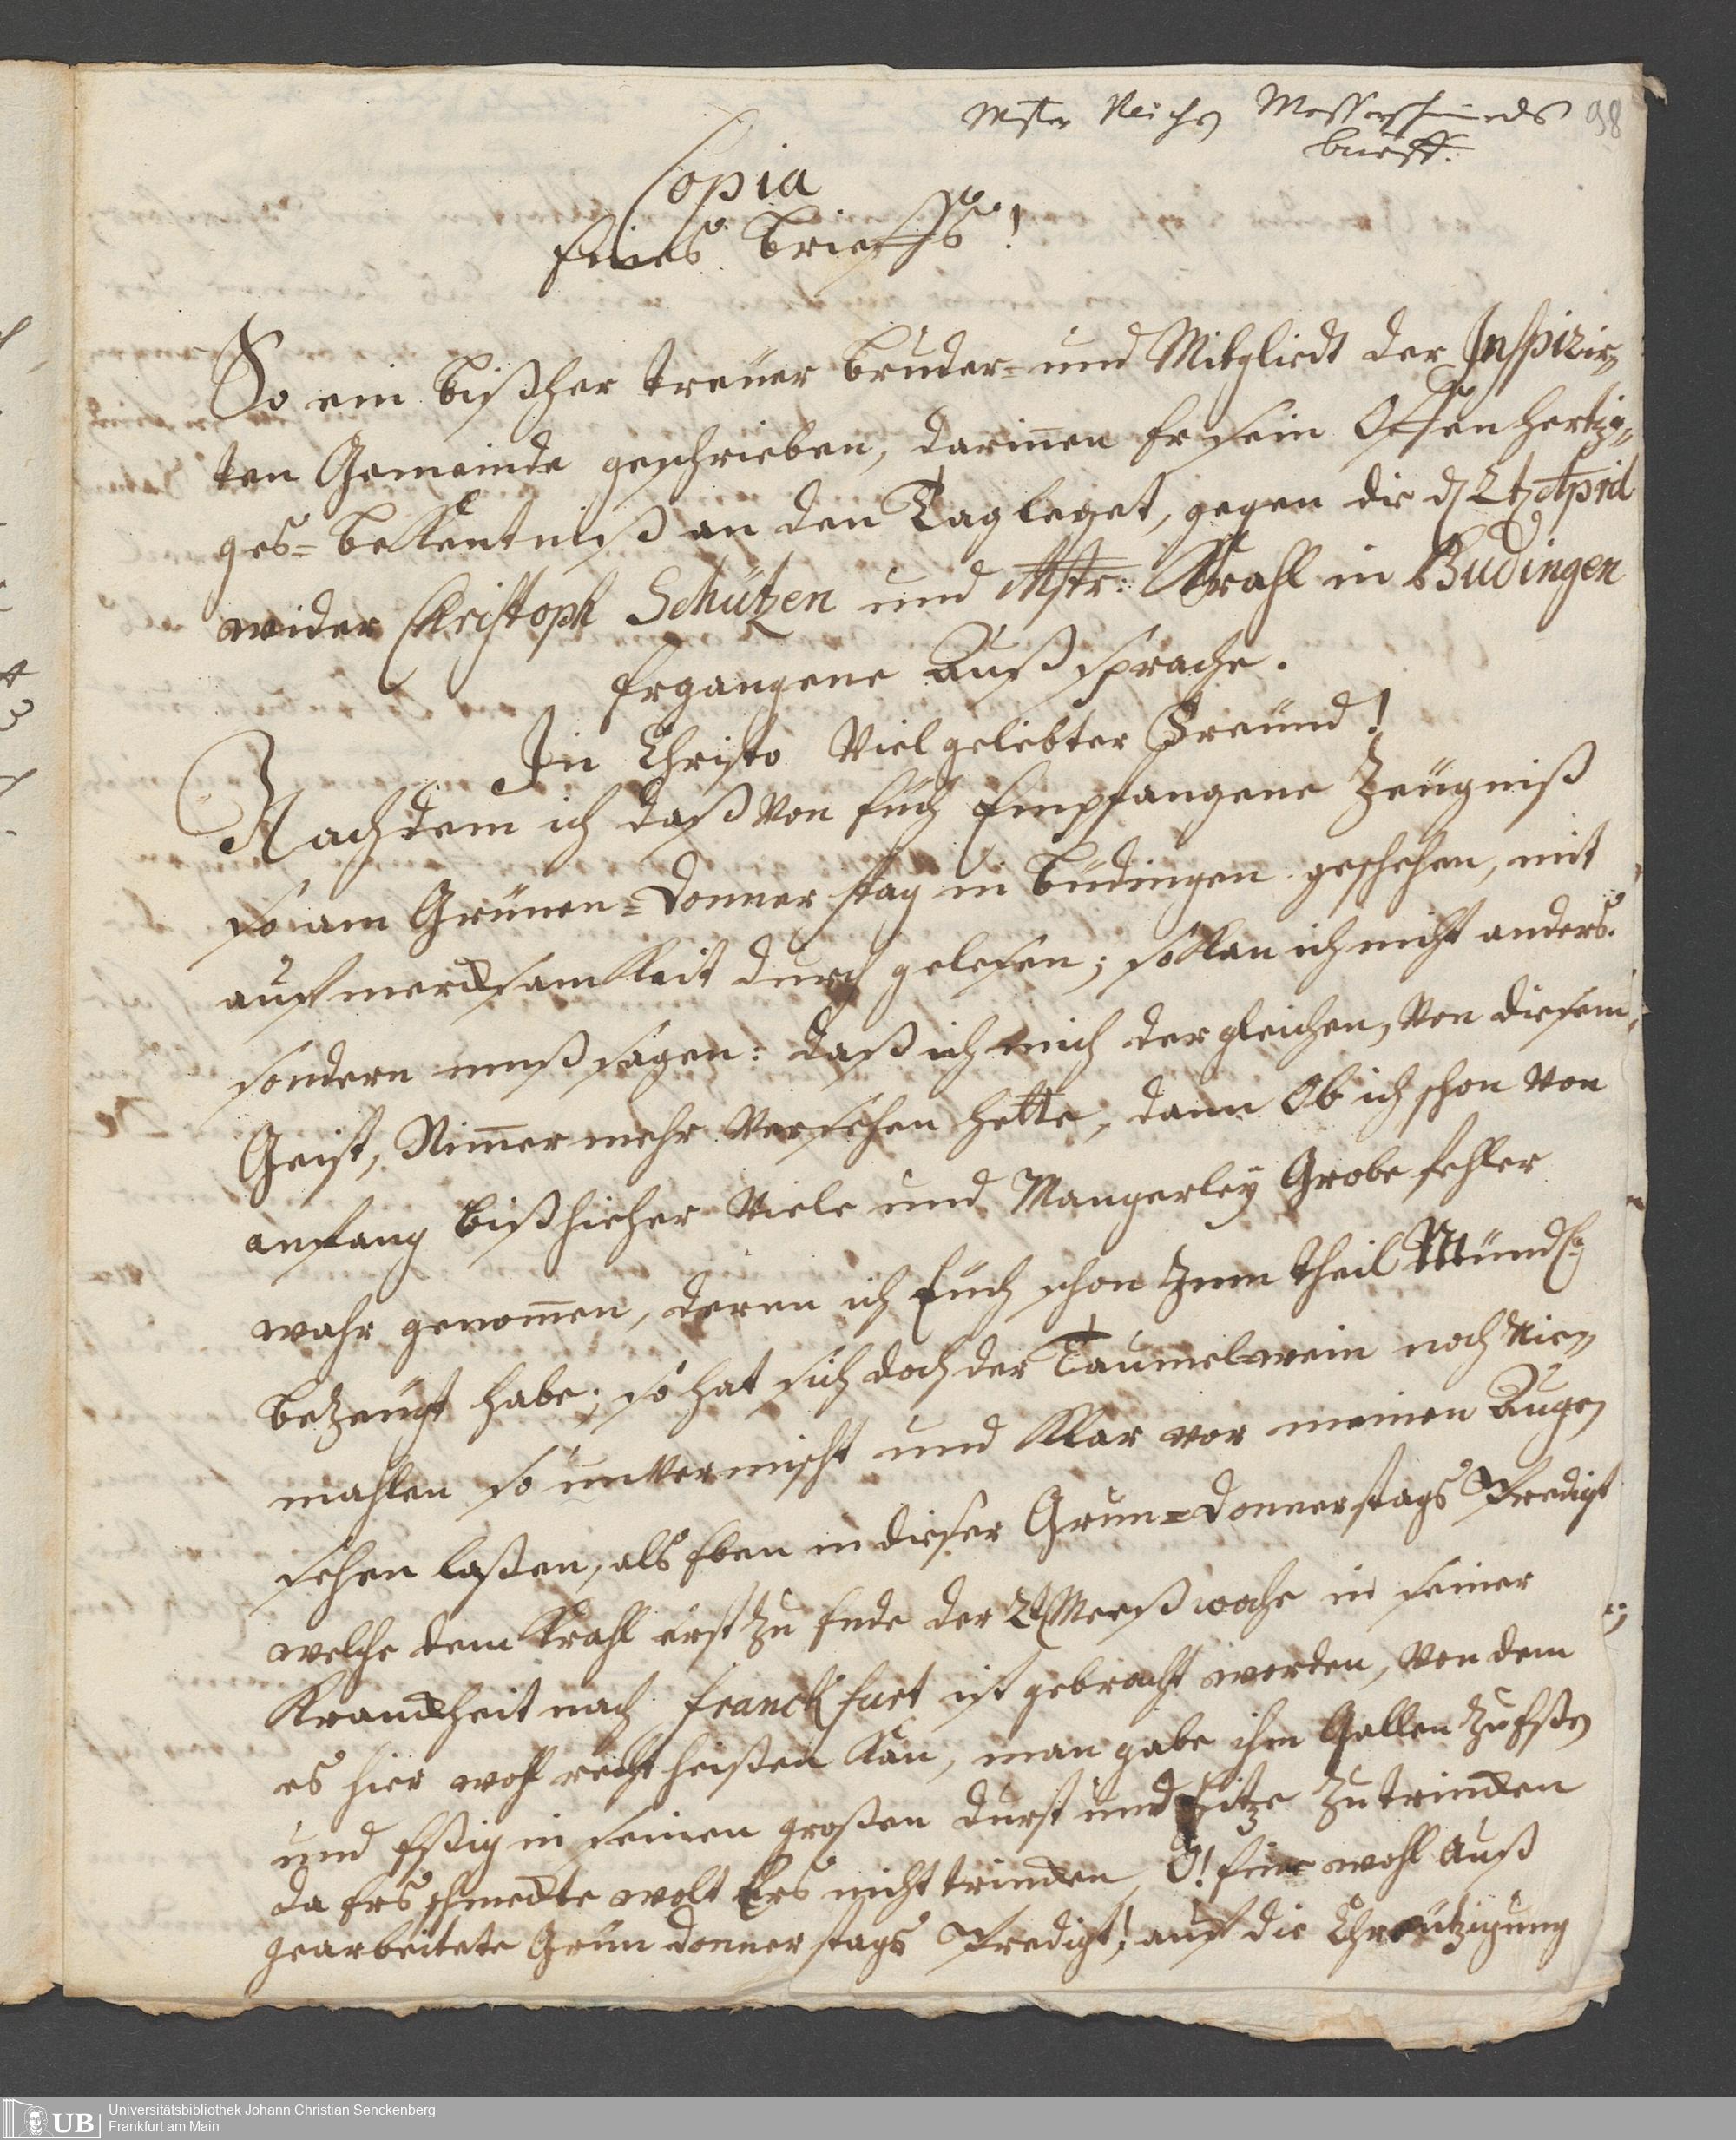 Mstr Reichs Messerschmieds 98
brieff.
Copia
Eines Brieffs!
So ein bißher treüer Bruder= und Mitgliedt der Inspirir„
ten Gemeinde geschrieben, darin̄en Er sein Offenhertzi„
ges= bekentniß an den Tag leget, gegen die d 24 April
wider Christoph Schützen und Mstr: Krahl in Büdingen
Ergangene Außsprache.
In Christo Viel gelebter Freünd!
Nach dem ich daß von Eüch Empfangene Zeügniß
so am Grünen=Donnerstag in Büdingen geschehen, mit
aufmercksamkeit durch gelesen; so kan ich nicht anders.
sondern muß sagen: daß ich mich dergleichen, von diesem,
Geist, Nim̄ermehr versehen hette, dann Ob ich schon von
anfang bißhieher viele und Mangerley Grobe fehler
wahr genom̄en, deren ich Eüch schon zum theil Mündl:
bezeügt habe; so hat sich doch der Taumelwein noch Nie„
mahlen so unvermischt und klar vor meinen Augen
sehen laßen, als Eben in dieser Grün=Donnerstags Predigt
welche dem Krahl erst zu Ende der 2t Meeßwoche in seiner
Kranckheit nach Franckfurt ist gebracht worden, von dem
es hier wohl recht heißen kan, man gabe ihm Gallen zu Eßen
und Eßig in seinen großen Durst und Hitze zu trincken
da Ers schmeckte wolt Ers nicht trincken, O! Eine wohl Auß
gearbeitete Grün donnerstags Predigt! auf die Chreützigung
Universitätsbibliothek Johann Christian Senckenberg
Frankfurt am Main
UB